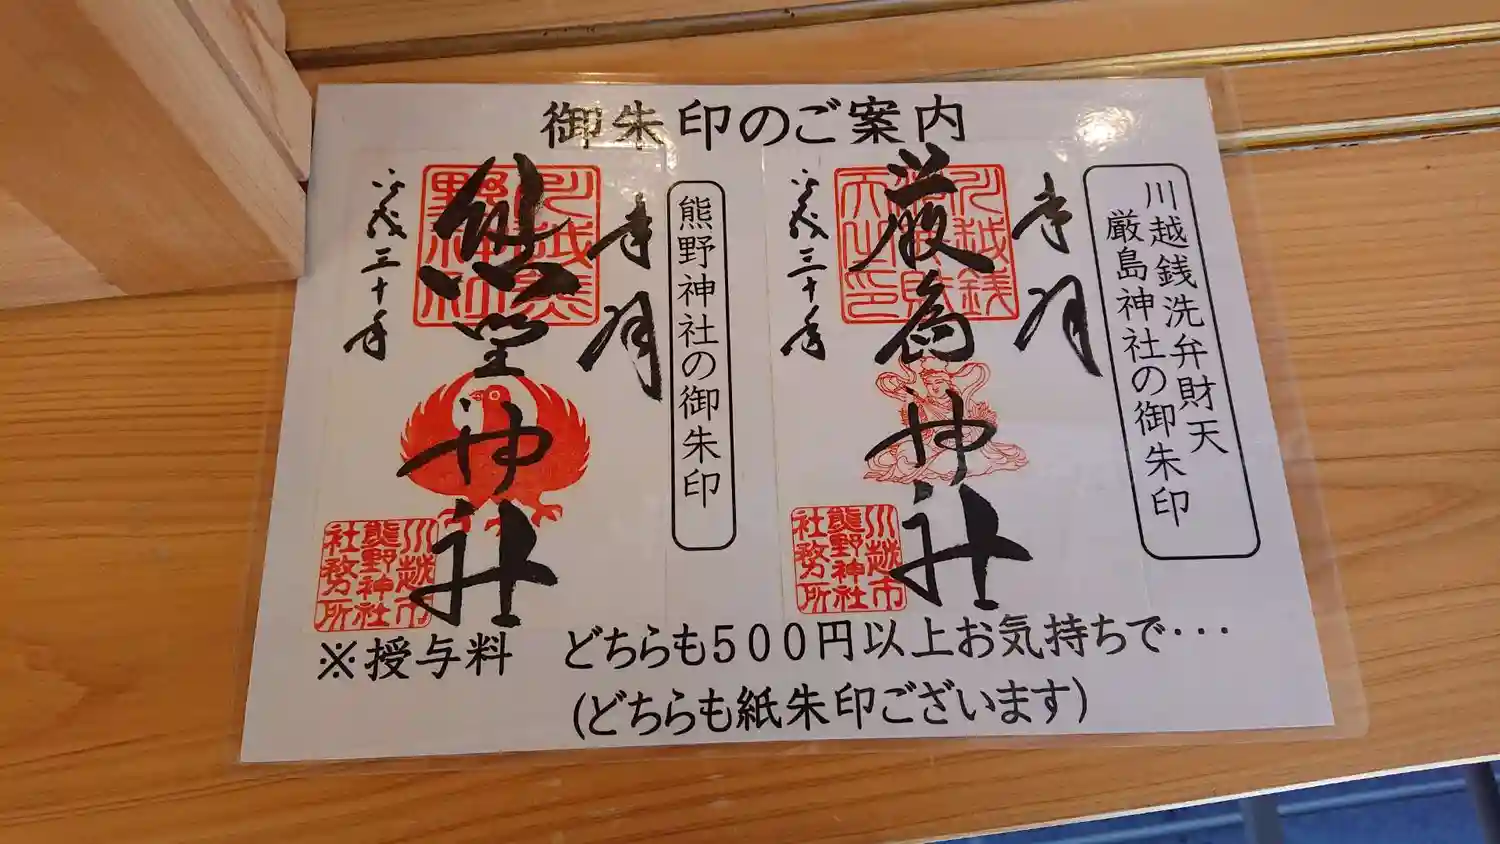 御朱印のご案内
川越銭洗弁財天
厳島神社の御朱印
奉拝
厳島神社
平成三十年
川越市
熊野神社
社務所
熊野神社の御朱印
奉拝
川越熊
野神社
熊野神社
平成三十年
川越市
熊野神社
社務所
※授与料 どちらも500円以上お気持ちで・・・
(どちらも紙朱印ございます)